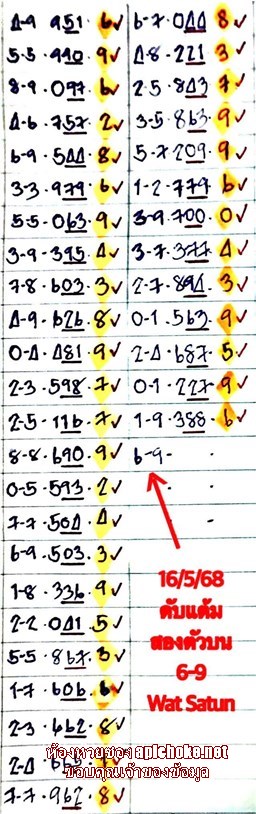 4-9 951.6✓
5-5.990.9✓
8-9.097.6✓
4-6.757.2✓
6-9.544.8✓
3-3.979.6✓
5-5.063.9✓
3-9.395.4✓
7-8.603.3✓
4-9.626.8✓
0-4.481.9✓
2-3.598.7✓
2-5.116.7✓
8-8.690.9✓
0-5.593.2✓
7-7.504.4✓
6-9.503.3✓
1-8.336.9✓
2-2.041.5✓
5-5.867.3✓
1-7.606.6✓
2-3.662.8✓
7-7.962.8✓
6-7.044 8✓
4-8.221 3✓
2-5.843 7✓
3-5.863.9✓
5-7.209.9✓
1-2-779 6✓
3-9.700.0✓
3-7.377.4✓
2-7.894.3✓
0-1.563.9✓
2-4.687.5✓
0-1.227.9✓
1-9.388.6✓
6-9-
16/5/68
ดับแต้ม
สองตัวบน
6-9
Wat Satun
ห้องหวยของapichoke.net
ขอบคุณเจ้าของข้อมูล